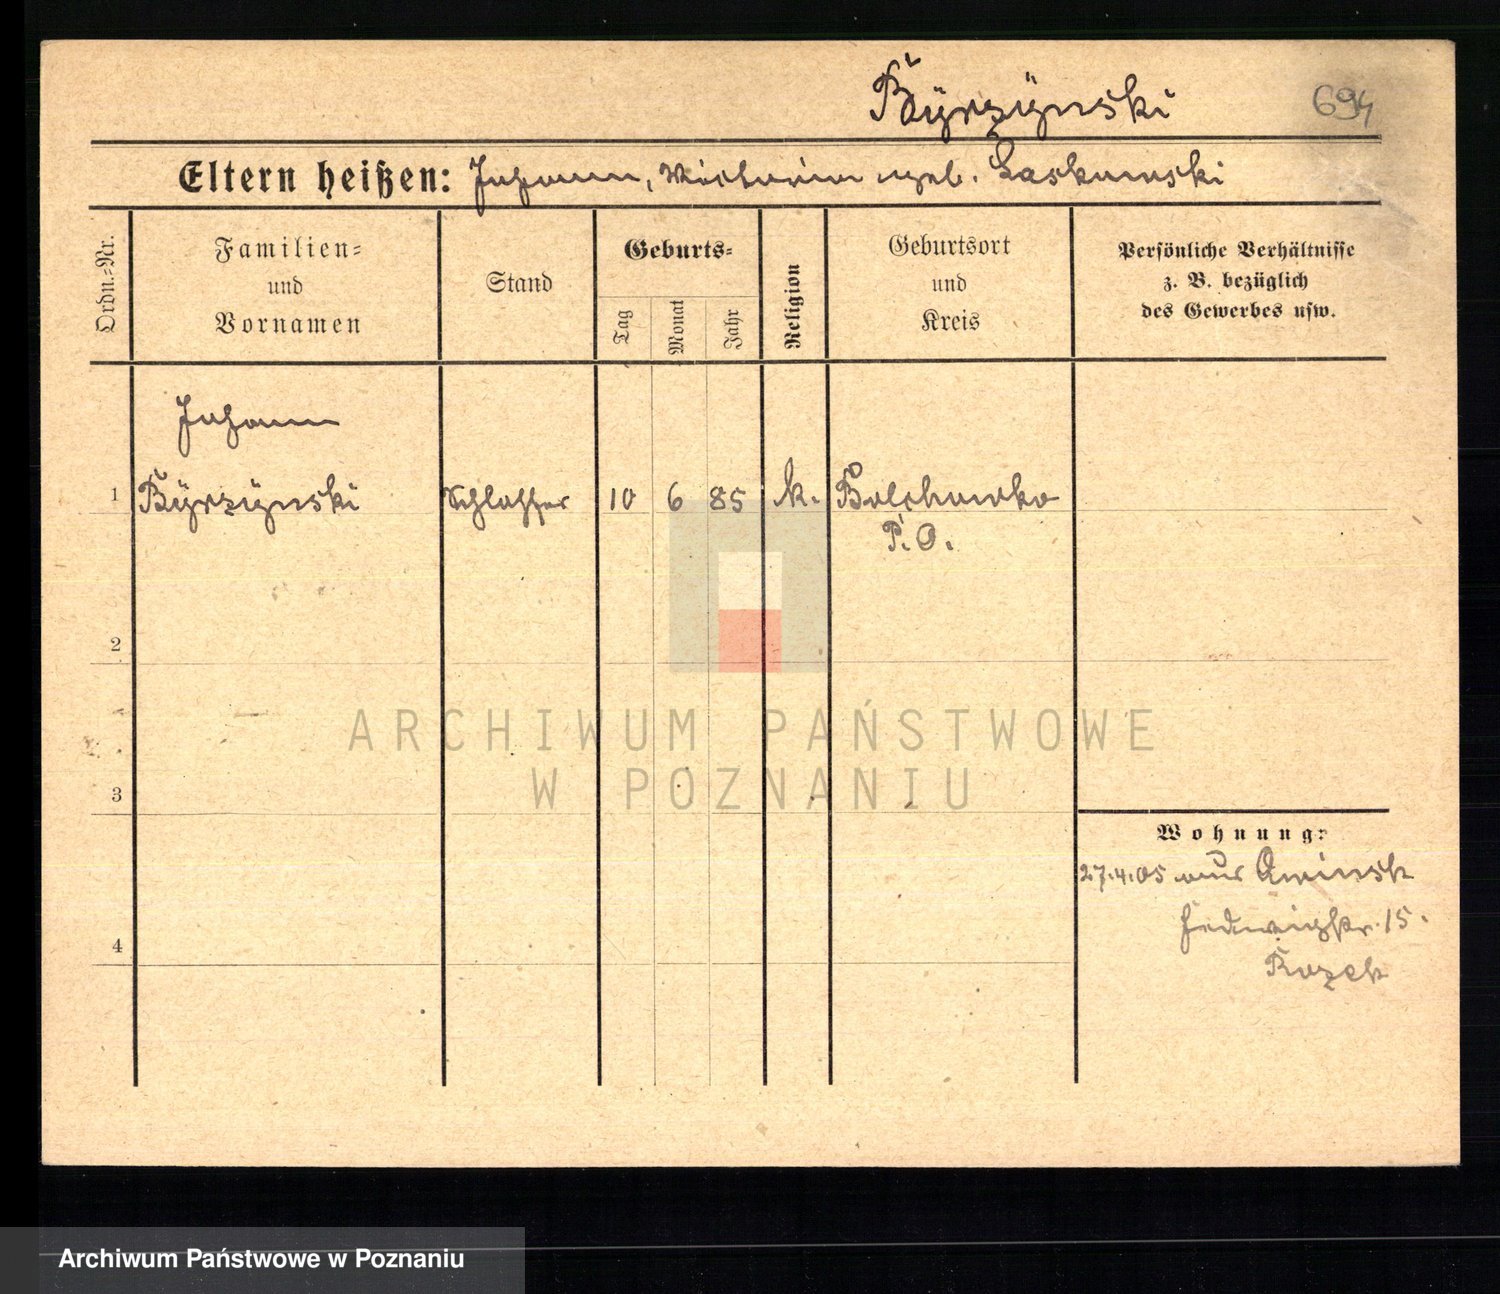 Byrzynski
694
Eltern heißen: Johann, Victoria geb. Laskowski
Ordn.=Nr.
Familien=
und
Vornamen
Stand
Geburts=
Tag
Monat
Jahr
Religion
Geburtsort
und
Kreis
Persönliche Verhältnisse
z. B. bezüglich
des Gewerbes usw.
Johann
1 Byrzynski Schlosser 10 6 85 k. Bolechowko
P. O.
2
3
4
Wohnung:
27.4.05 aus
Hedwigstr. 15.
ARCHIWUM PAŃSTWOWE
W POZNANIU
Archiwum Państwowe w Poznaniu